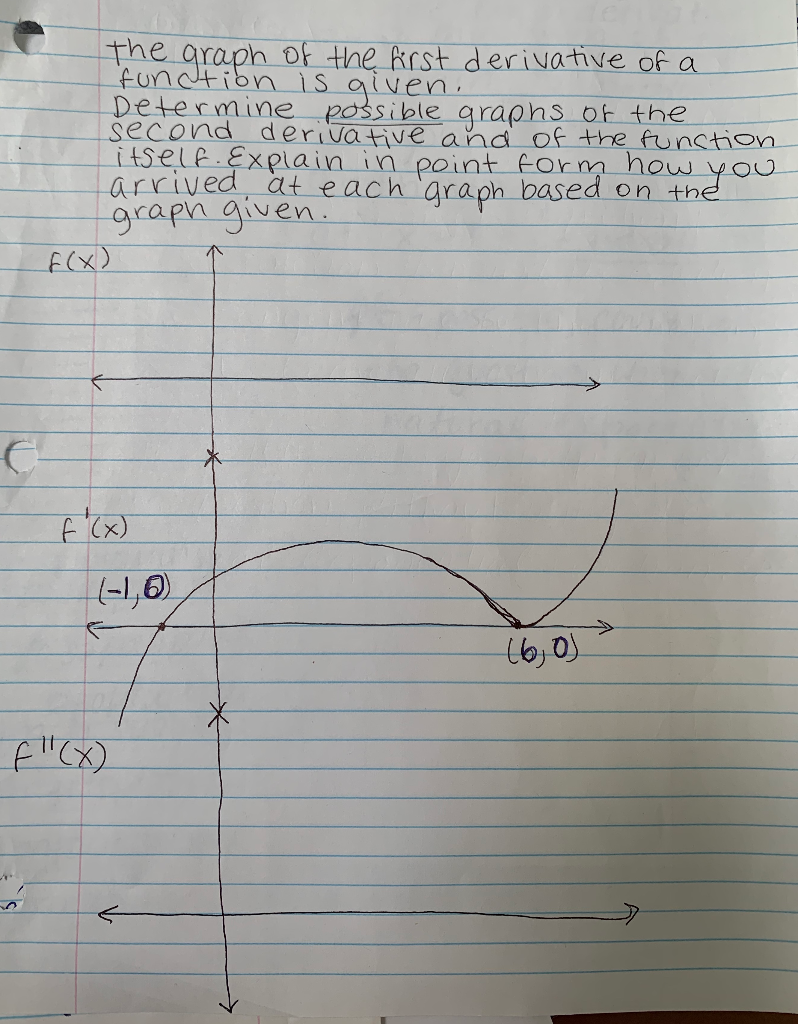 the graph of the first derivative of a
function is given.
Determine possible graphs of the
second derivative and of the function
itself. Explain in point form how you
arrived at each graph based on the
graph given.
f(x)
f'(x)
(-1,0)
(6,0)
f''(x)